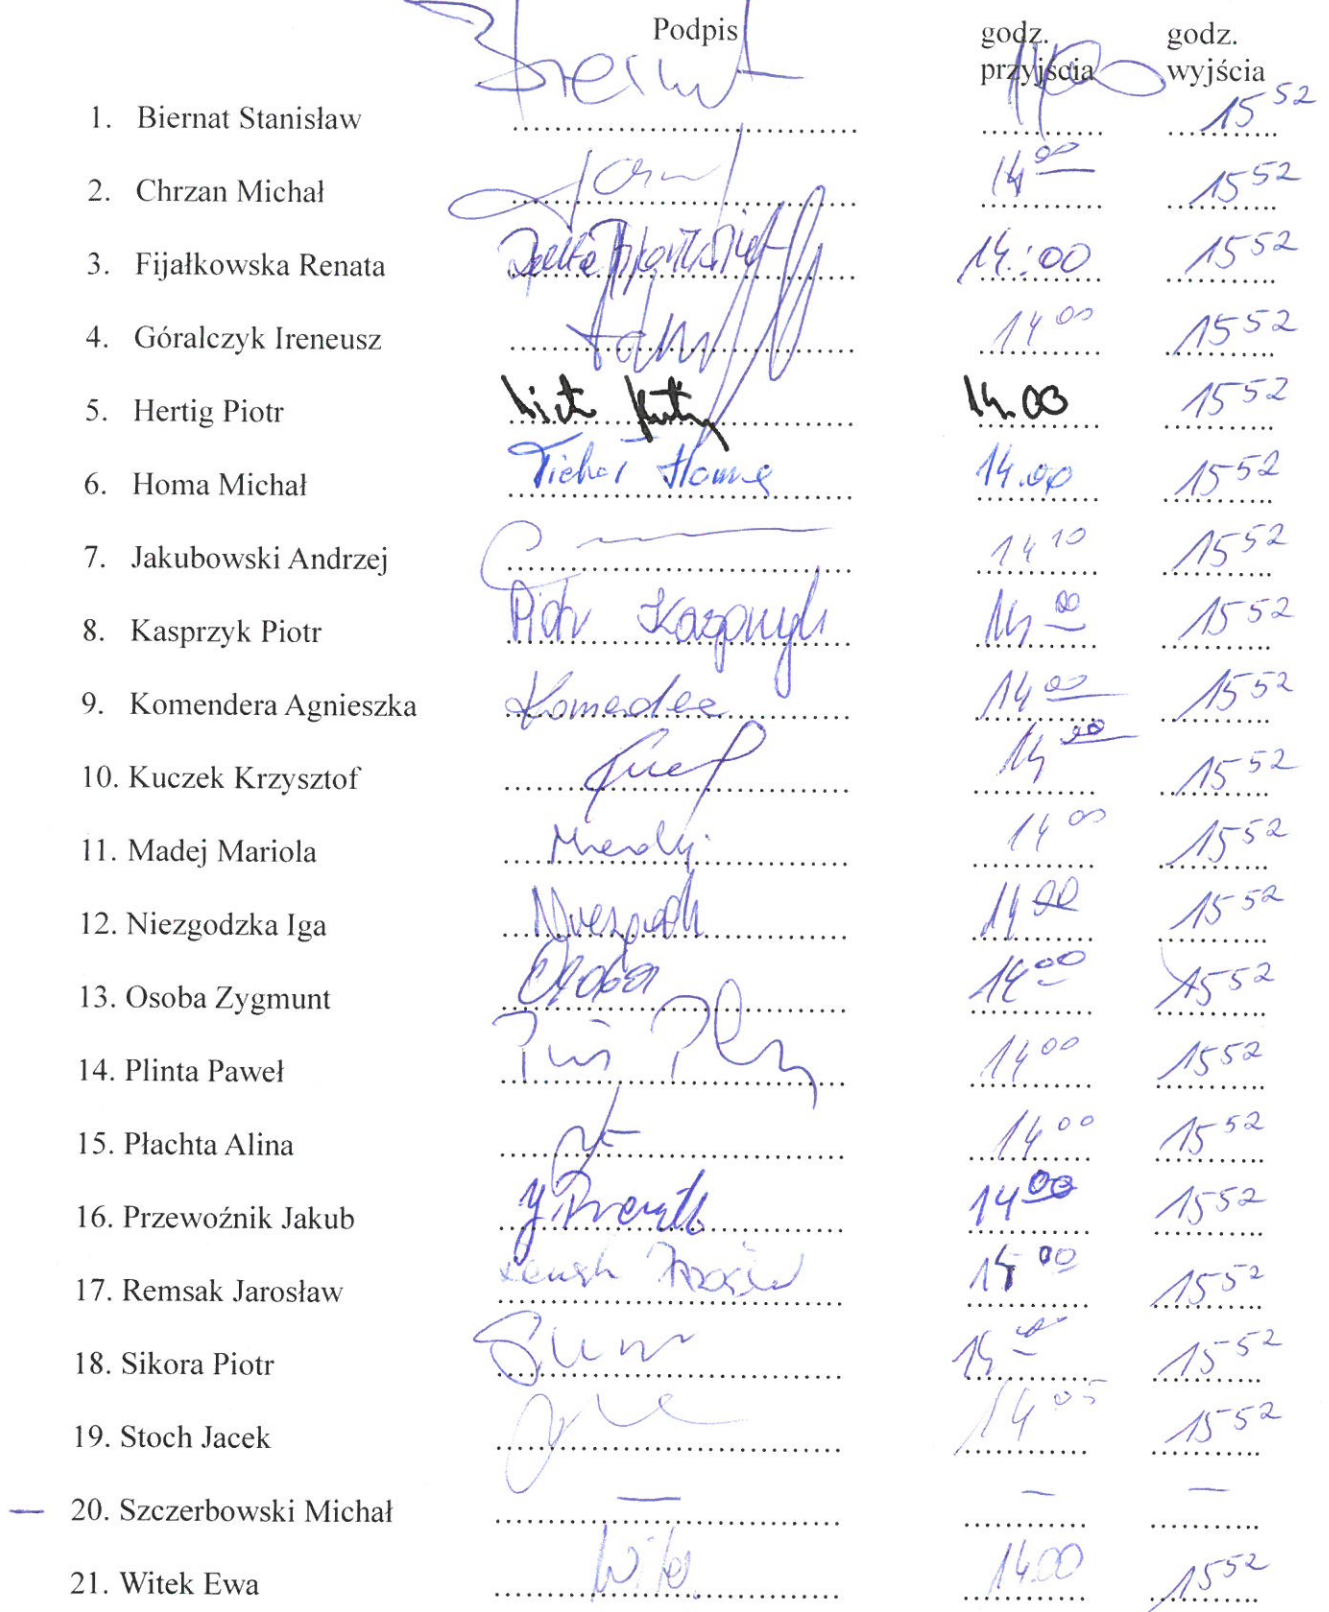 Podpis godz. przyjścia godz. wyjścia
1. Biernat Stanisław 15 52
2. Chrzan Michał 14 00 15 52
3. Fijałkowska Renata 14:00 15 52
4. Góralczyk Ireneusz 14 00 15 52
5. Hertig Piotr 14.00 15 52
6. Homa Michał 14.00 15 52
7. Jakubowski Andrzej 14 10 15 52
8. Kasprzyk Piotr Piotr Kasprzyk 14 00 15 52
9. Komendera Agnieszka 14 00 15 52
10. Kuczek Krzysztof 14 00 15 52
11. Madej Mariola 14 00 15 52
12. Niezgodzka Iga 14 00 15 52
13. Osoba Zygmunt Osoba 14 00 15 52
14. Plinta Paweł 14 00 15 52
15. Płachta Alina 14 00 15 52
16. Przewoźnik Jakub 14 00 15 52
17. Remsak Jarosław 14 00 15 52
18. Sikora Piotr 14 00 15 52
19. Stoch Jacek 14 05 15 52
— 20. Szczerbowski Michał — — —
21. Witek Ewa 14.00 15 52